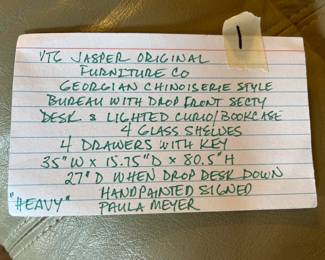 1
VTG JASPER ORIGINAL
FURNITURE CO
GEORGIAN CHINOISERIE STYLE
BUREAU WITH DROP FRONT SECTY
DESK & LIGHTED CURIO/BOOKCASE
4 GLASS SHELVES
4 DRAWERS WITH KEY
35"W X 15.75"D X 80.5"H
27"D WHEN DROP DESK DOWN
"HEAVY" HANDPAINTED SIGNED
PAULA MEYER